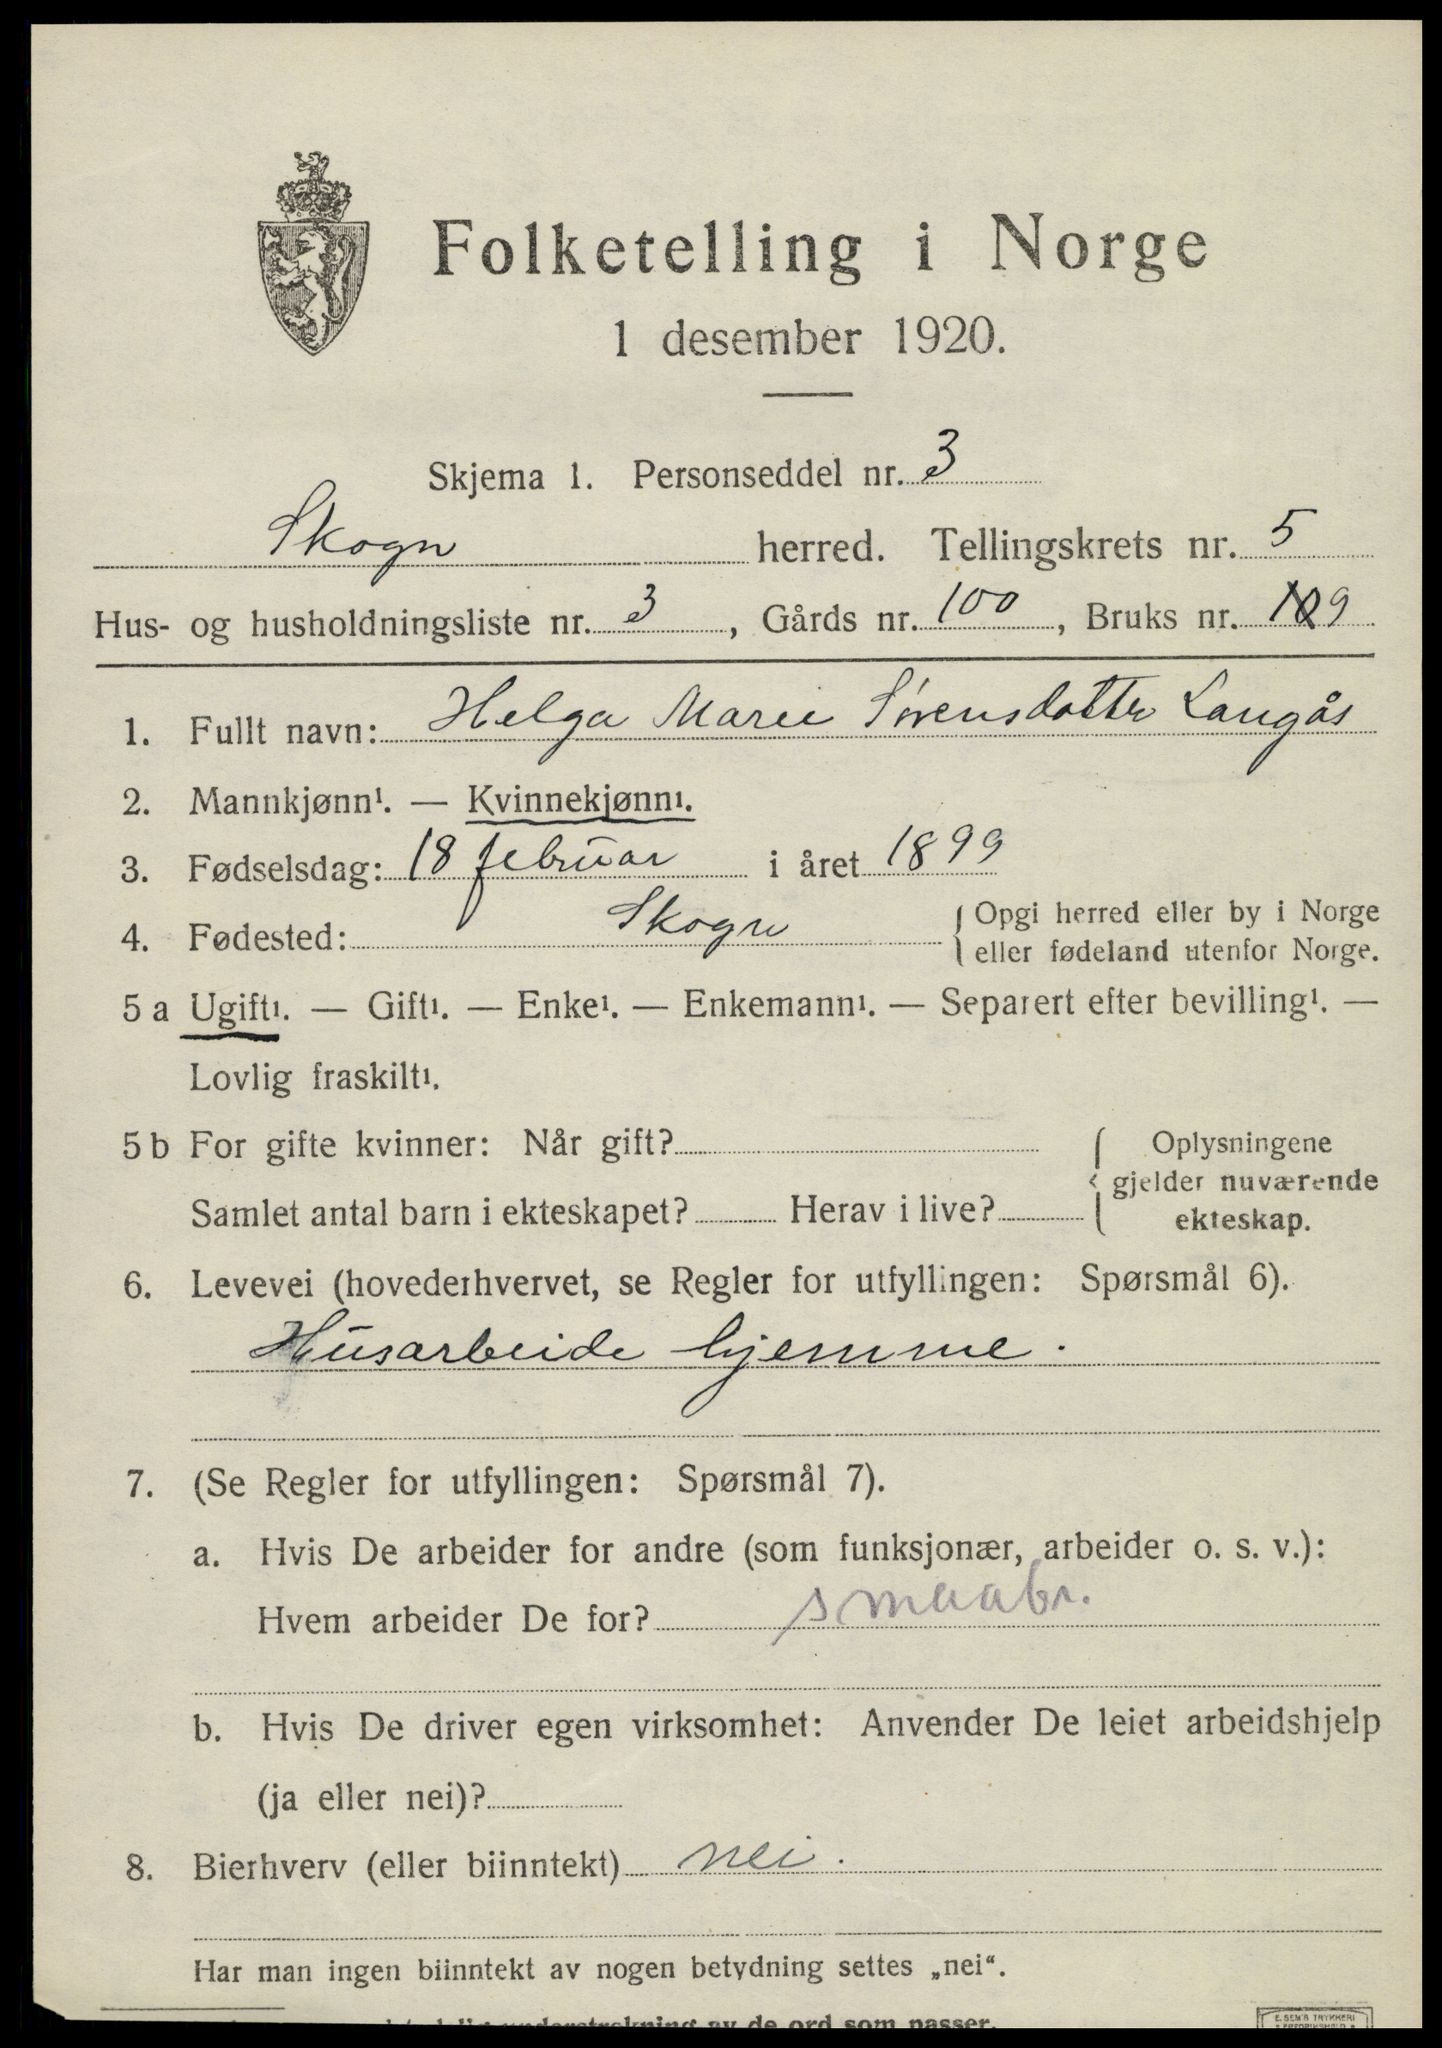 Folketelling i Norge
1 desember 1920.
Skjema 1. Personseddel nr. 3
Skogn herred. Tellingskrets nr. 5
Hus- og husholdningsliste nr. 3, Gårds nr. 100, Bruks nr. 109
1. Fullt navn: Helga Marie Sørensdatter Langås
2. Mannkjønn¹. — Kvinnekjønn¹.
3. Fødselsdag: 18 februar i året 1899
4. Fødested: Skogn { Opgi herred eller by i Norge
eller fødeland utenfor Norge.
5 a Ugift¹. — Gift¹. — Enke¹. — Enkemann¹. — Separert efter bevilling¹. —
Lovlig fraskilt¹.
5 b For gifte kvinner: Når gift? { Oplysningene
gjelder nuværende
Samlet antal barn i ekteskapet? Herav i live? ekteskap.
6. Levevei (hovederhvervet, se Regler for utfyllingen: Spørsmål 6).
Husarbeide hjemme.
7. (Se Regler for utfyllingen: Spørsmål 7).
a. Hvis De arbeider for andre (som funksjonær, arbeider o. s. v.):
Hvem arbeider De for? smaabr.
b. Hvis De driver egen virksomhet: Anvender De leiet arbeidshjelp
(ja eller nei)?
8. Bierhverv (eller biinntekt) nei.
Har man ingen biinntekt av nogen betydning settes „nei“.
understrekning av de ord som passer.
E. SEM'S TRYKKERI
FREDRIKSHALD